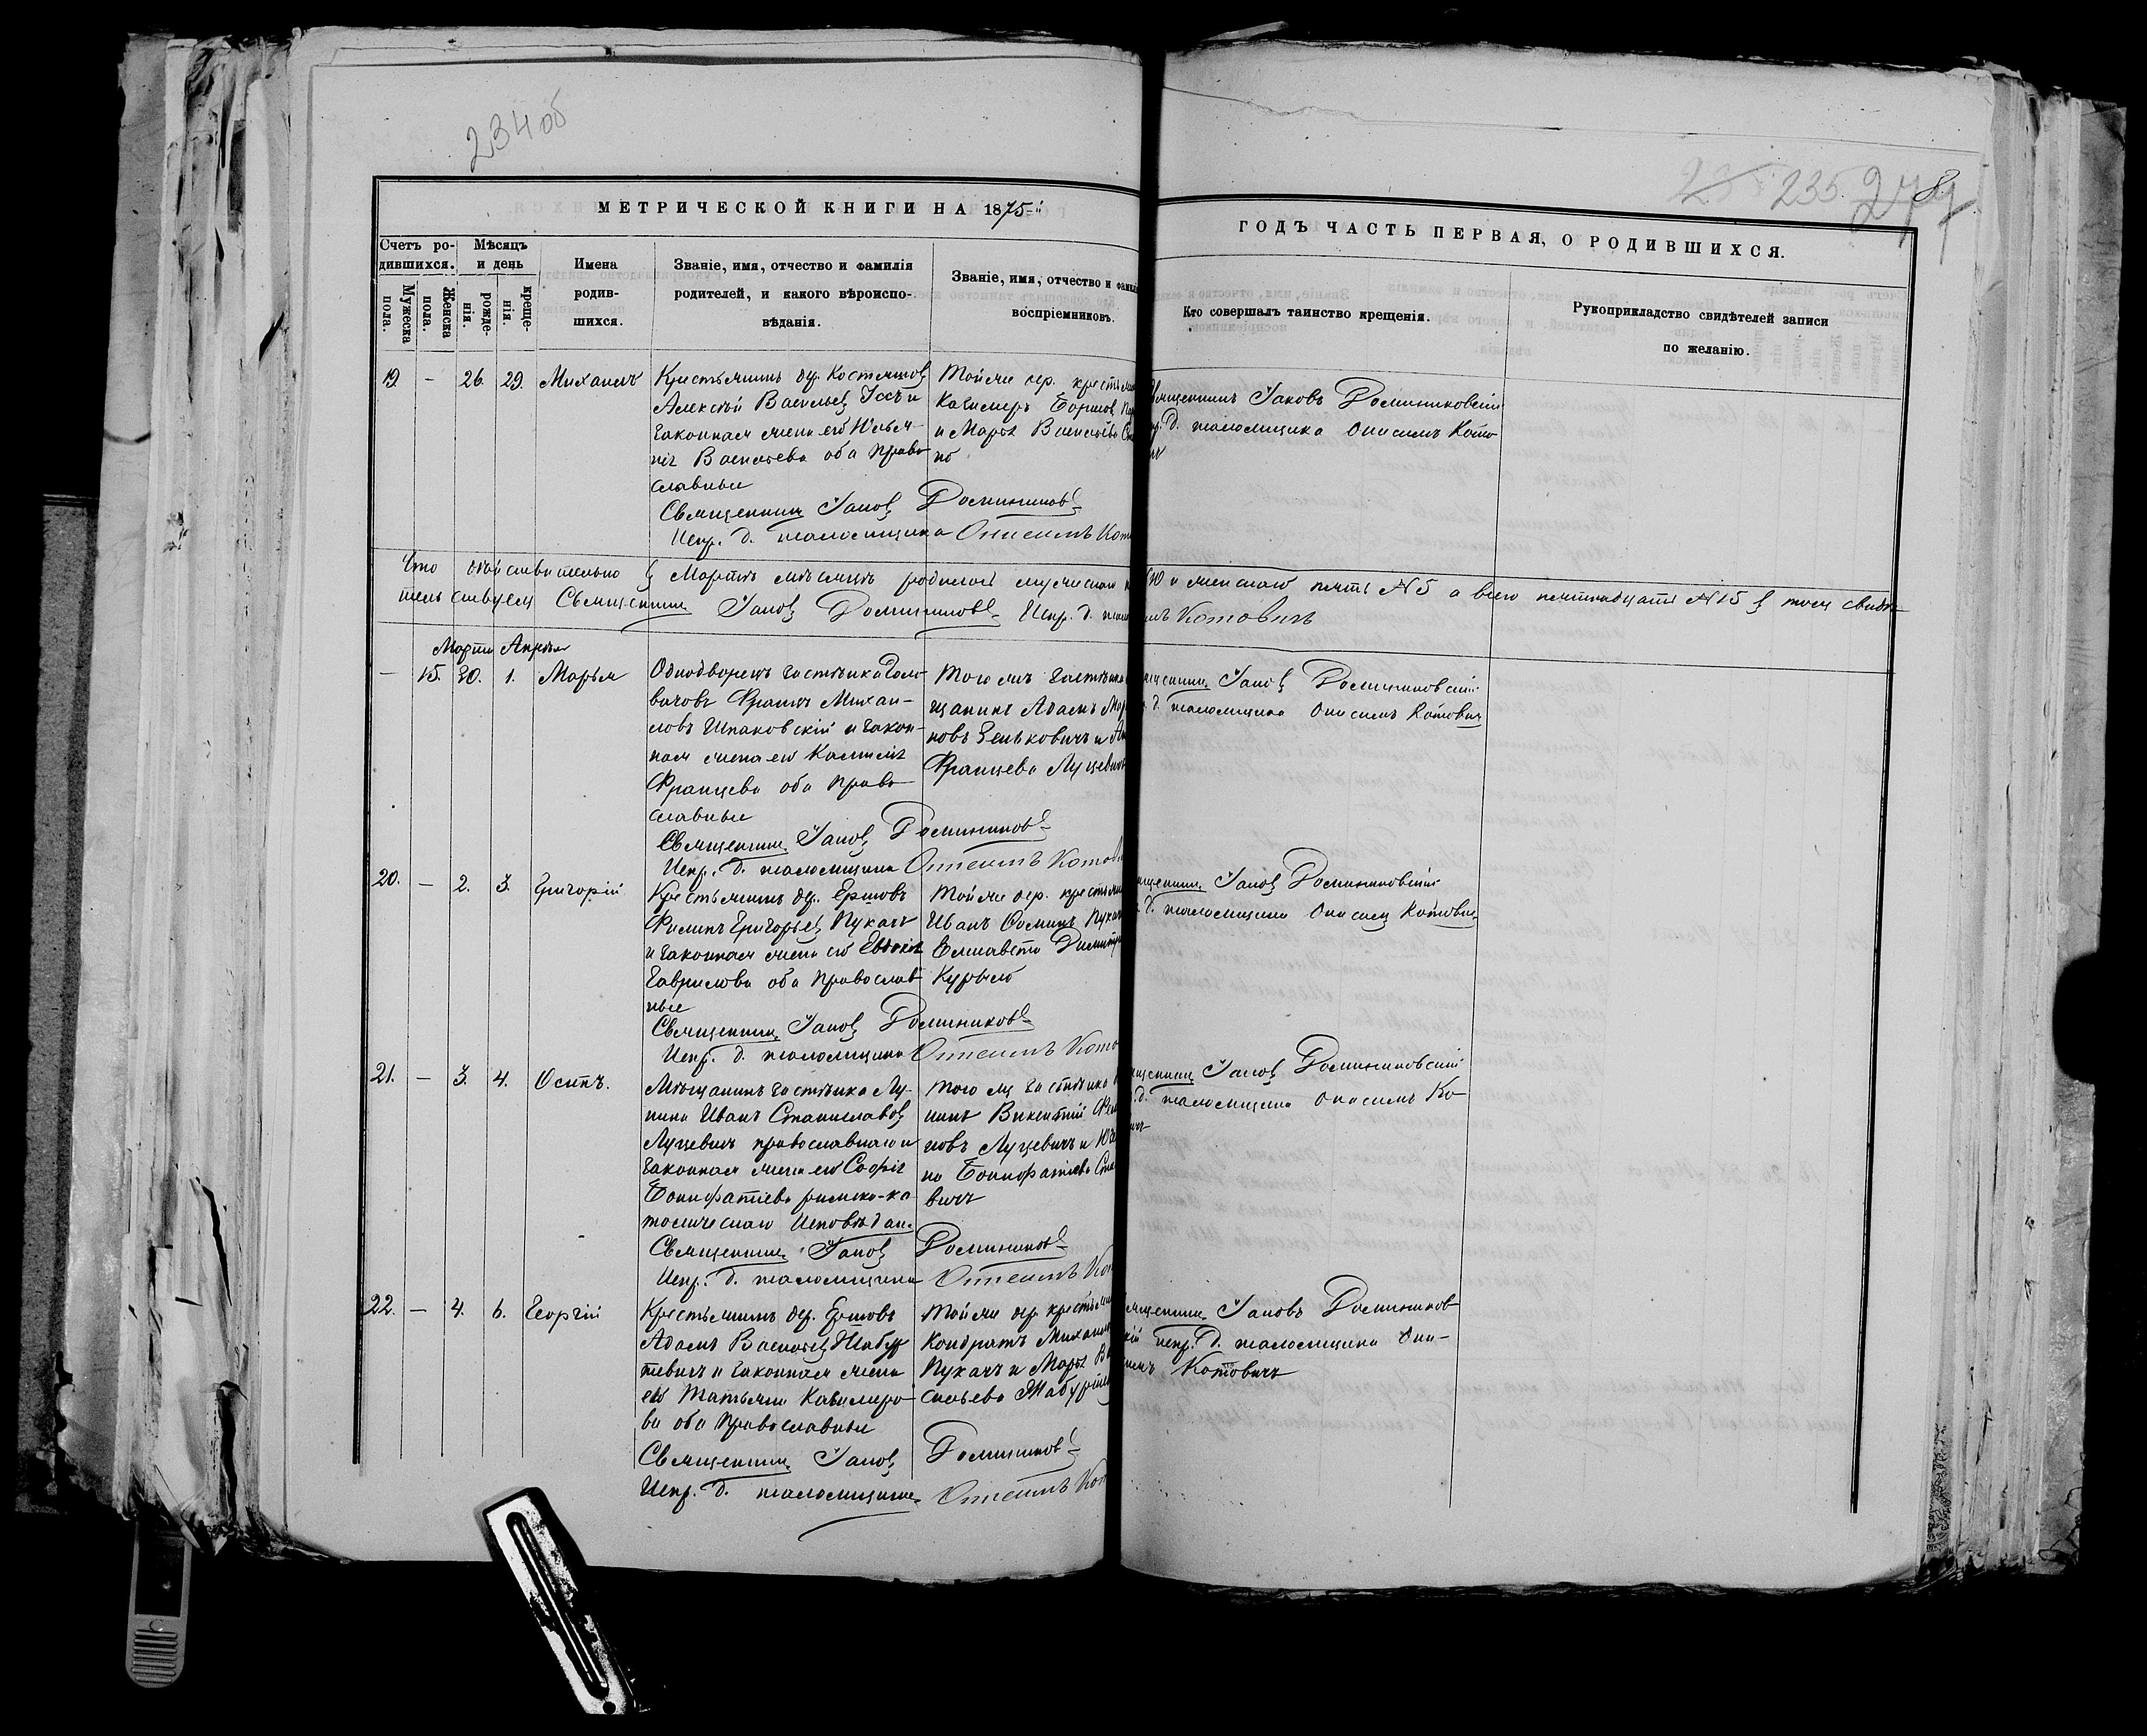 234 об
235.
МЕТРИЧЕСКОЙ КНИГИ НА 1875-й
ГОДЪ ЧАСТЬ ПЕРВАЯ, О РОДИВШИХСЯ.
Счетъ ро-
дившихся.
Мѣсяцъ
и день
Мужеска
пола.
Женска
пола.
рожде-
нія.
креще-
нія.
Имена
родив-
шихся.
Званіе, имя, отчество и фамилія
родителей, и какого вѣроиспо-
вѣданія.
Званіе, имя, отчество и фамил
воспріемниковъ.
Кто совершалъ таинство крещенія.
Рукоприкладство свидѣтелей записи
по желанію.
19 - 26. 29. Михаилъ
Крестьянинъ дер.
Алексѣй Васильевъ и
законная жена его
Васильева оба право
славные
Священникъ Іаковъ Доминиковс
Испр. д. псаломщика Онисимъ Кот
Той же дер. крестьян
Казимиръ
и Марѳа Васильева
Священникъ Іаковъ Доминиковскій
д. псаломщика Онисимъ Кото
Что дѣйствительно въ Мартѣ мѣсяцѣ родилось мужескаго и женскаго пять №5 а всего пятнадцать №15 въ томъ свидѣ
тельствуемъ Священникъ Іаковъ Доминиковс Испр. д. Котовичъ
Марта Апрѣля
— 15. 30. 1. Марья
Однодворецъ застѣнка
Францъ Михаи-
ловъ Шпаковскій и закон-
ная жена его
Францева оба право
славные
Священникъ Іаковъ Доминиковс
Испр. д. псаломщика Онисимъ Котов
Того жъ застѣнка
щанинъ Адамъ
новъ Зенковичъ и
Францева Луцевич
Іаковъ Доминиковскій
д. псаломщика Онисимъ Котович
20. — 2. 3. Григорій
Крестьянинъ дер. Ершовъ
Филипъ Григорьевъ Пукачъ
и законная жена его Евдокія
Гаврилова оба православ
ные
Священникъ Іаковъ Доминиковс
Испр. д. псаломщика Онисимъ Кото
Той же дер. крестьян
Иванъ Ѳоминъ Пукач
Елисавета Димитр
Курыло
Іаковъ Доминиковскій
д. псаломщика Онисимъ Котович
21. — 3. 4. Осипъ.
Мѣщанинъ застѣнка Лу-
пина Иванъ Станиславовъ
Луцевичъ православнаго и
законная жена его Софія
Бонифатіева римско-ка
толическаго исповѣдан.
Священникъ Іаковъ Доминиковс
Испр. д. псаломщика Онисимъ Кот
Того же застѣнка
нинъ Викентій
новъ Луцевичъ и
на Бонифатіева
вичъ
Іаковъ Доминиковскій
д. псаломщика Онисимъ Ко-
22. — 4. 6. Георгій
Крестьянинъ дер. Ершовъ
Адамъ Васильевъ
и законная жена
его Татьяна Казимиро-
ва оба православные
Священникъ Іаковъ Доминиковс
Испр. д. псаломщика Онисимъ Кот
Той же дер. крестьян
Кондратъ Михаил
Пукачъ и Марѳа
сильева
Іаковъ Домиников-
скій испр. д. псаломщика Они-
симъ Котовичъ